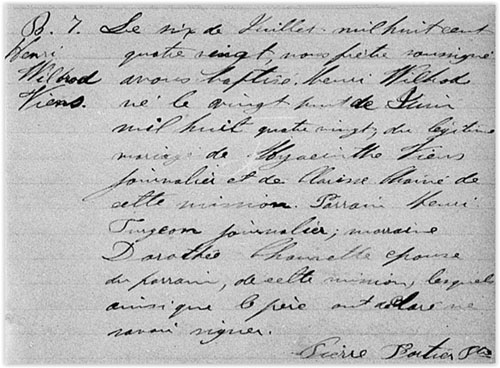 B. 7.
Henri
Wilbrod
Viens.
Le six de Juillet mil huit cent
quatre vingt, nous prêtre soussigné
avons baptisé Henri Wilbrod
né le vingt huit de Juin
mil huit quatre vingt, du légitime
mariage de Hyacinthe Viens
journalier et de Claire de
cette mission. Parrain Henri
Turgeon journalier; marraine
Dorothée Chaurette épouse
du parrain, de cette mission, lesquels
ainsi que le père ont déclaré ne
savoir signer.
Pierre Ptre